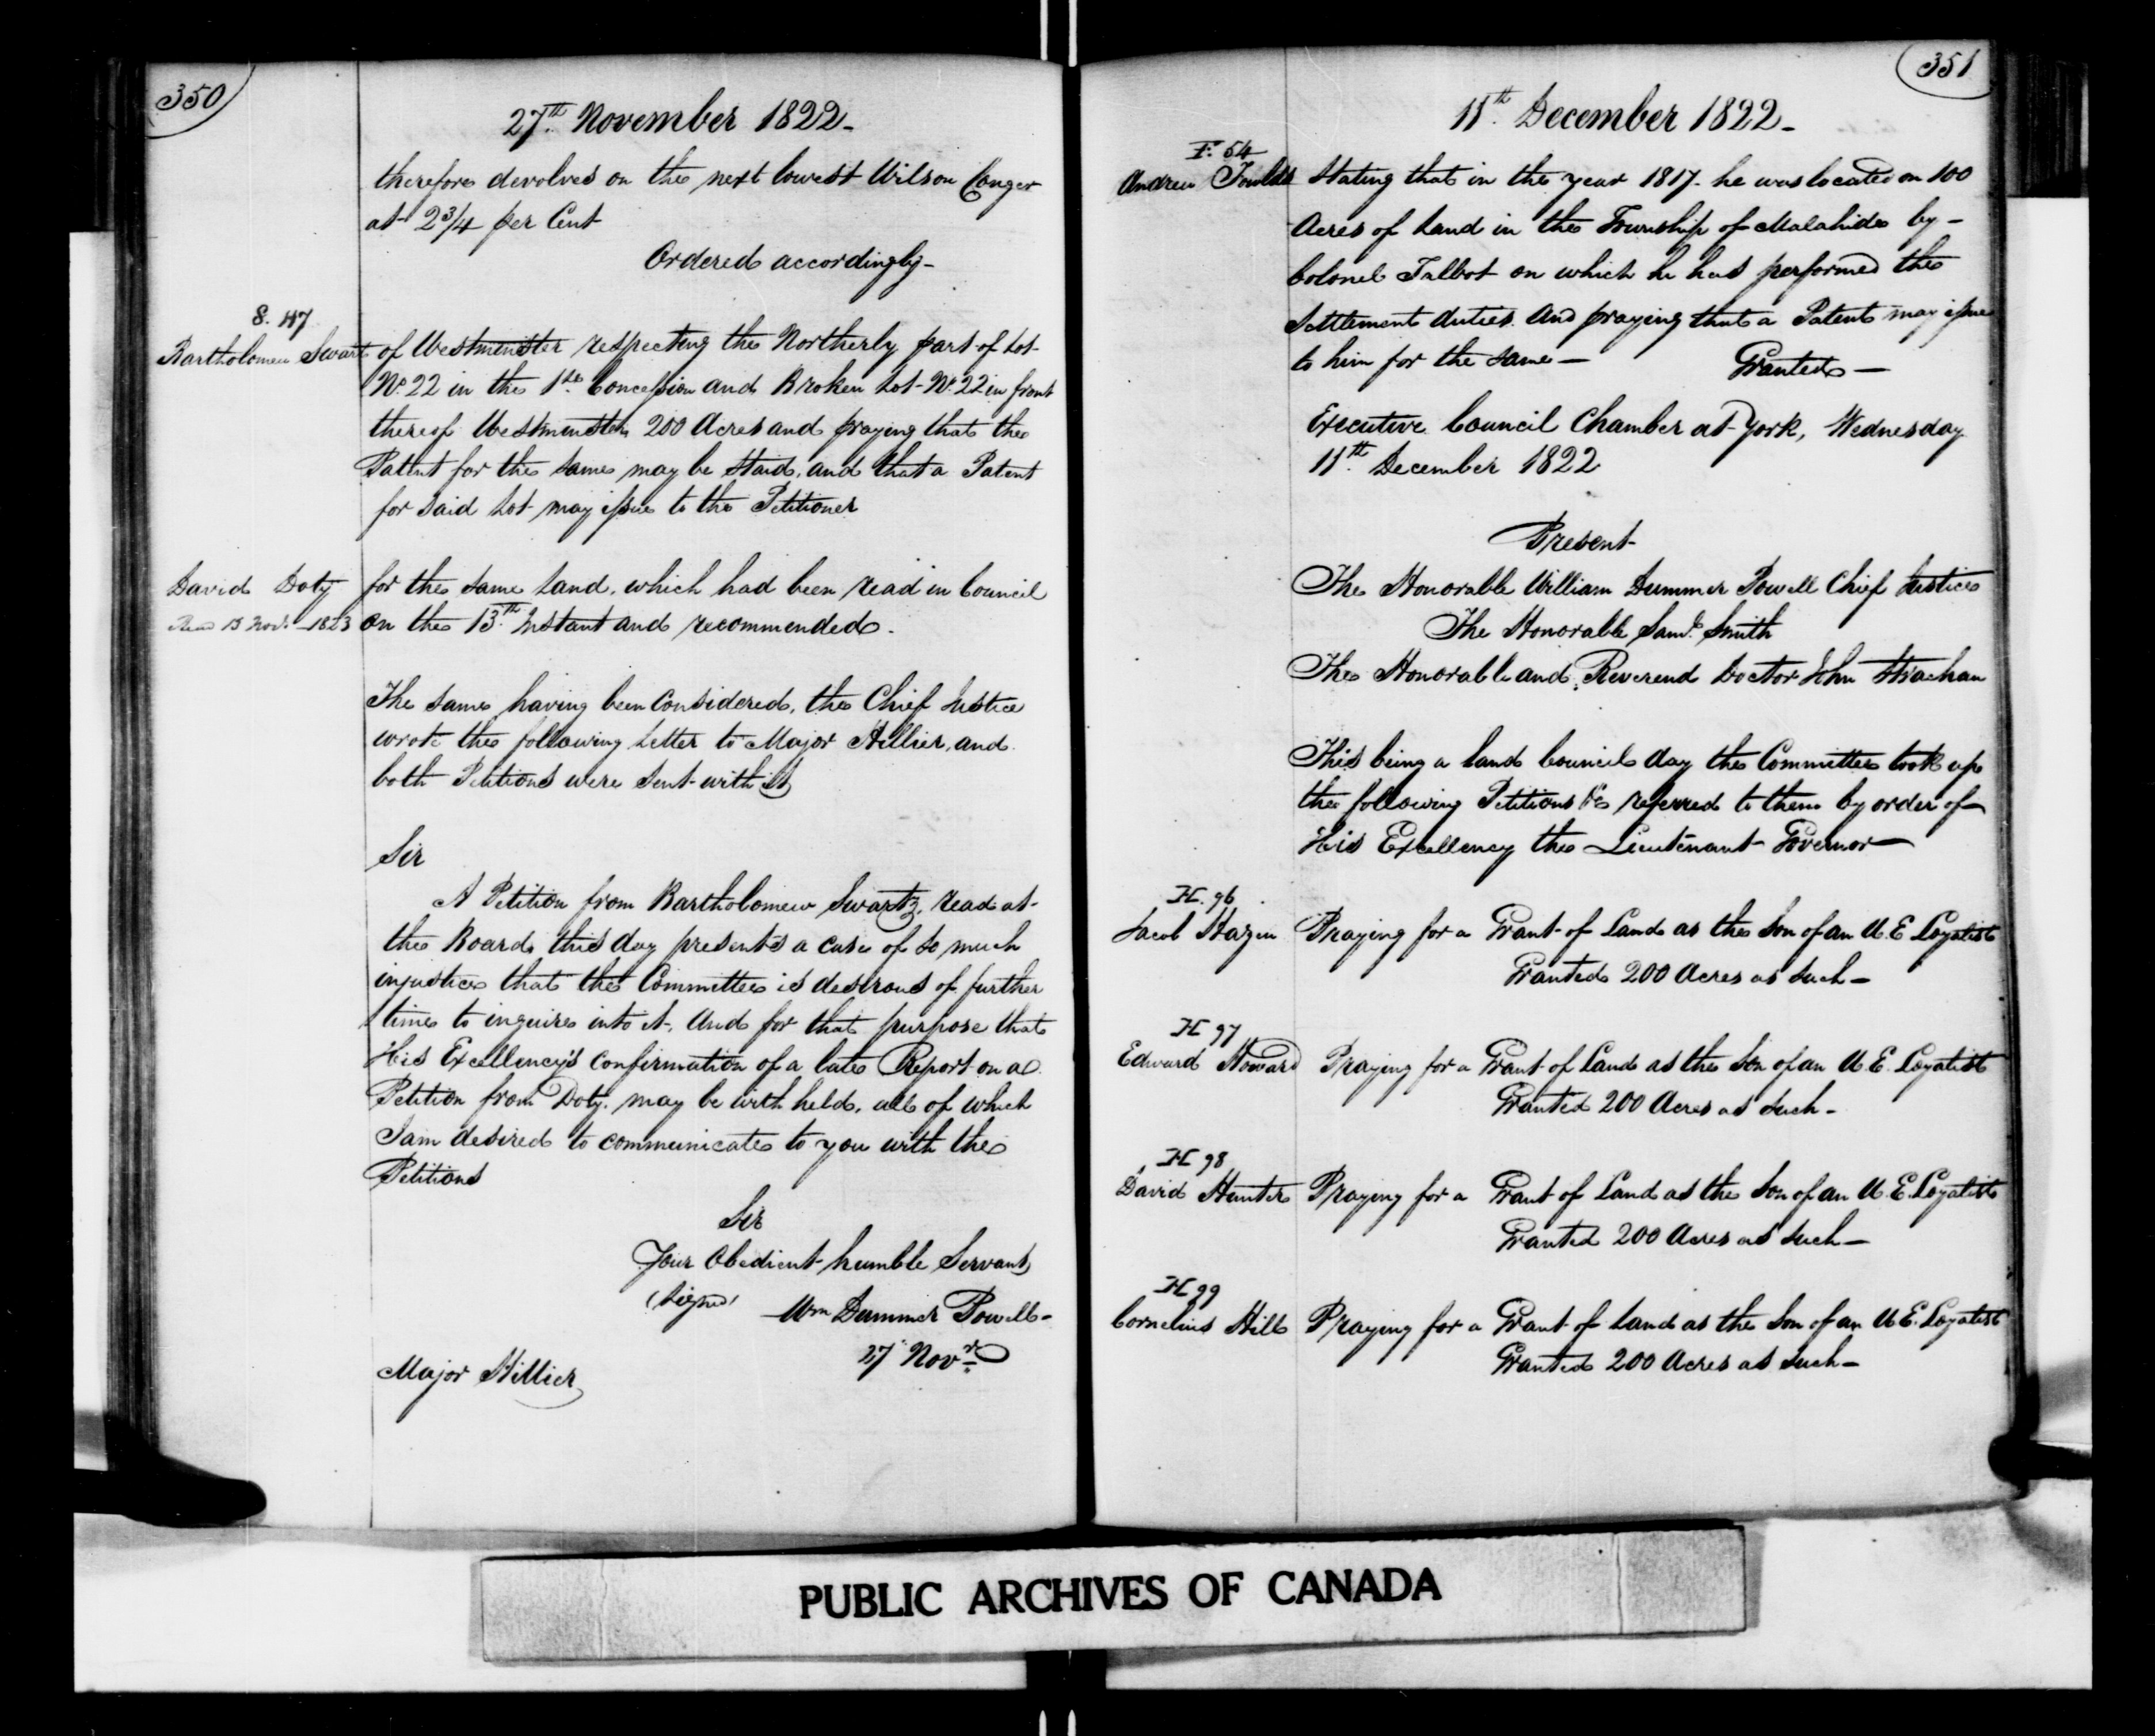 350
27th November 1822-
therefore devolves on the next lowest Wilson Conger
at 2 3/4 per Cent
Ordered accordingly-
S. 117
Bartholomew Swart of Westminster respecting the Northerly part of Lot
No. 22 in the 1st Concession and Broken Lot No. 22 in front
thereof Westminster 200 Acres and praying that the
Patent for the same may be staid, and that a Patent
for said Lot may issue to the Petitioner
David Doty for the same Land, which had been read in Council
Read 13 Nov. 1823 on the 13th Instant and recommended.
The same having been considered, the Chief Justice
wrote the following Letter to Major Hillier, and
both Petitions were sent with it
Sir
A Petition from Bartholomew Swartz, read at
the Board this day presents a case of so much
injustice that the Committee is desirous of further
time to inquire into it, and for that purpose that
His Excellency's confirmation of a late Report on a
Petition from Doty, may be withheld, all of which
I am desired to communicate to you with the
Petitions
Sir
Your Obedient humble Servant
(Signed) Wm Dummer Powell-
27 Novr
Major Hillier
351
11th December 1822-
F. 54
Andrew Foulds Stating that in the year 1817 he was located on 100
Acres of Land in the Township of Malahide by-
Colonel Talbot on which he has performed the
Settlement duties. And praying that a Patent may issue
to him for the same - Granted -
Executive Council Chamber at York, Wednesday
11th December 1822
Present
The Honorable William Dummer Powell Chief Justice
The Honorable Saml. Smith
The Honorable and Reverend Doctor John Strachan
This being a Land Council day the Committee took up
the following Petitions &c referred to them by order of
His Excellency the Lieutenant Governor-
H. 96
Jacob Hazen Praying for a Grant of Land as the Son of an U.E Loyalist
Granted 200 Acres as such-
H 97
Edward Howard Praying for a Grant of Land as the Son of an U.E. Loyalist
Granted 200 Acres as such-
H 98
David Hunter Praying for a Grant of Land as the Son of an U.E. Loyalist
Granted 200 Acres as such-
H 99
Cornelius Hill Praying for a Grant of Land as the Son of an U.E. Loyalist
Granted 200 Acres as such-
PUBLIC ARCHIVES OF CANADA